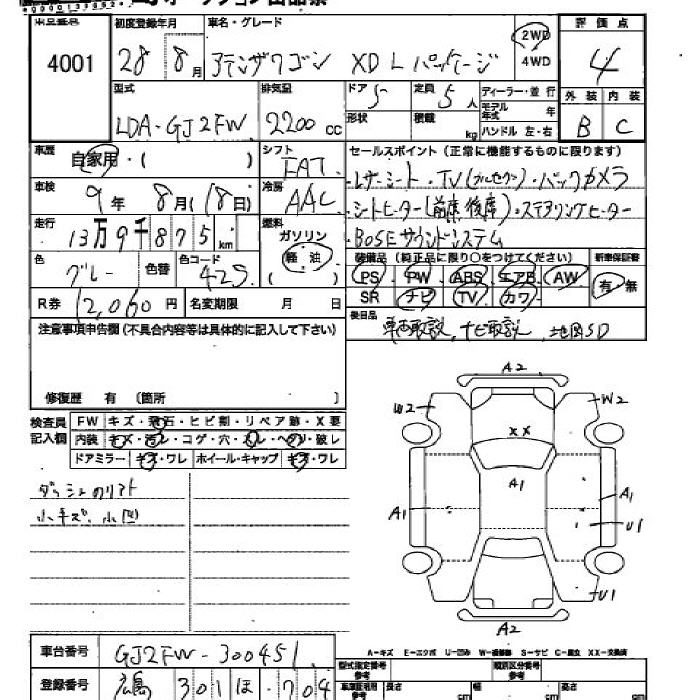 4001
初度登録年月 車名・グレード 評価点
28年 8月 アテンザワゴン XD Lパッケージ 2WD 4WD 4
型式 排気量 ドア・ 定員 ディーラー・並行 外装 内装
LDA-GJ2FW 2200cc 5 5人 モデル年式 年 B C
形状 積載 kg ハンドル 左・右
車歴 シフト セールスポイント(正常に機能するものに限ります)
自家用・( ) FAT ・レザーシート・TV(フルセグ)・バックカメラ
車検 冷房
9年 8月(18日) AAC ・シートヒーター(前席後席)・ステアリングヒーター
走行 燃料
13万9千875km ガソリン ・BOSEサウンドシステム
色 色替 色コード 軽・油 装備品(純正品に限り○をつけてください) 新車保証書
グレー 42S ( ) PS PW ABS エアB AW 有・無
R券 12,060円 名変期限 月 日 SR ナビ TV カワ
注意事項申告欄(不具合内容等は具体的に記入して下さい) 後日品 車両取説、ナビ取説、地図SD
修復歴 有 〔箇所
検査員記入欄 FW キズ・飛石・ヒビ割・リペア跡・X要
内装 キズ・汚レ・コゲ・穴・スレ・ヘタリ・破レ
ドアミラー キズ・ワレ ホイール・キャップ キズ・ワレ
ダッシュのリフト
小キズ、小凹
A2
W2 W2
XX
A1
A1 A1
U1
U1
A2
A-キズ E-エクボ U-凹み W-補修跡 S-サビ C-腐食 XX-交換済
車台番号 GJ2FW-300451
登録番号 広島 301 ほ・704
型式指定番号 参考 類別区分番号 参考
長さ cm 幅 cm 高さ cm